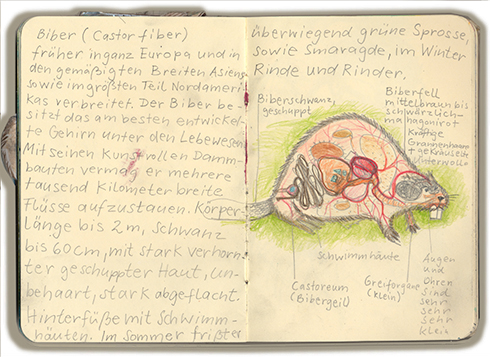 Biber (Castor fiber)
früher in ganz Europa und in
den gemäßigten Breiten Asiens
sowie im größten Teil Nordameri
kas verbreitet. Der Biber be-
sitzt das am besten entwickel-
te Gehirn unter den Lebewesen
Mit seinen kunstvollen Damm-
bauten vermag er mehrere
tausend Kilometer breite
Flüsse aufzustauen. Körper-
länge bis 2m, Schwanz
bis 60cm, mit stark verhorn-
ter geschuppter Haut, un-
behaart, stark abgeflacht.
Hinterfüße mit Schwimm-
häuten. Im Sommer frißter
überwiegend grüne Sprosse,
sowie Smaragde, im Winter
Rinde und Rinder.
Biberschwanz,
geschuppt
Biberfell
mittelbraun bis
schwärzlich-
mahagonirot
Kräftige
Grannenhaare
+ gekräuselte
Unterwolle
Schwimmhäute
Castoreum
(Bibergeil)
Greiforgane
(klein)
Augen
und
Ohren
sind
sehr
sehr
sehr
klein